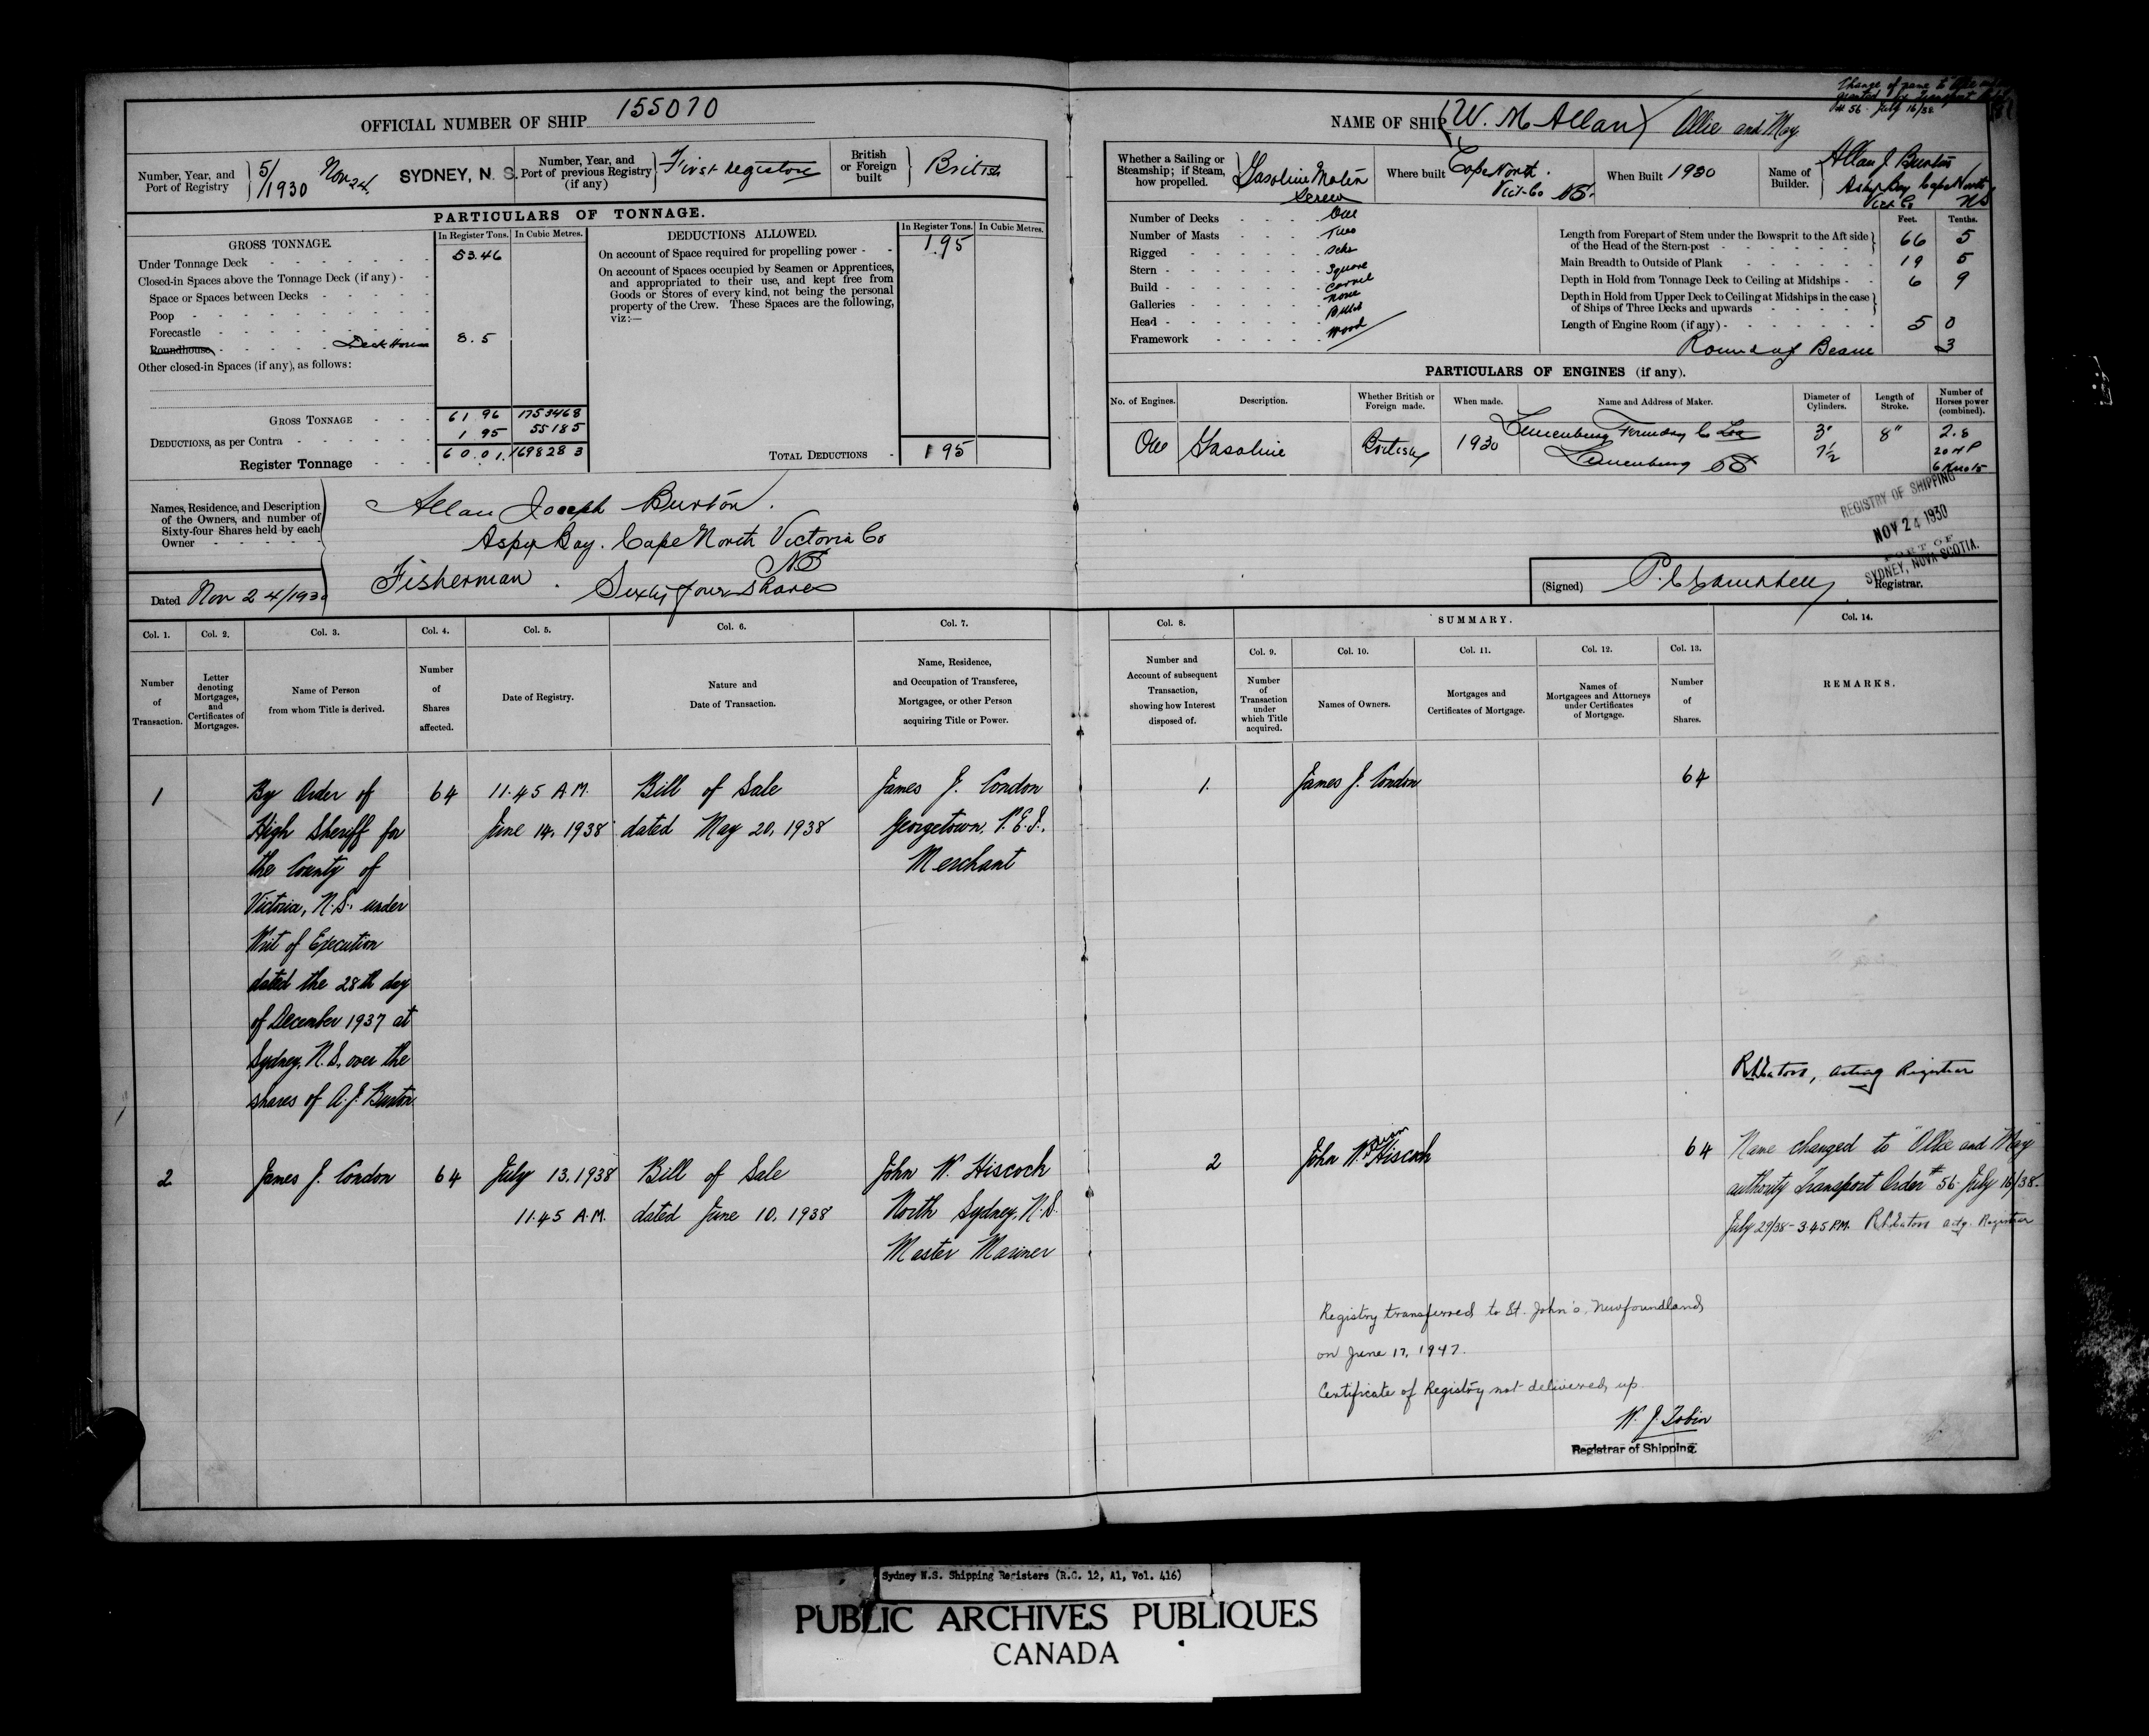 OFFICIAL NUMBER OF SHIP 155070
Number, Year, and Port of Registry
5/1930 Nov 24
SYDNEY, N. S.
Number, Year, and Port of previous Registry (if any)
First registry
British or Foreign built
British
PARTICULARS OF TONNAGE.
GROSS TONNAGE.
In Register Tons. In Cubic Metres.
Under Tonnage Deck 53.46
Closed-in Spaces above the Tonnage Deck (if any)
Space or Spaces between Decks
Poop
Forecastle
Roundhouse Deck House 8.5
Other closed-in Spaces (if any), as follows:
GROSS TONNAGE 61 96 1753468
DEDUCTIONS, as per Contra 1 95 55185
Register Tonnage 60.01 169828 3
DEDUCTIONS ALLOWED.
In Register Tons. In Cubic Metres.
On account of Space required for propelling power 1.95
On account of Spaces occupied by Seamen or Apprentices,
and appropriated to their use, and kept free from
Goods or Stores of every kind, not being the personal
property of the Crew. These Spaces are the following,
viz:—
TOTAL DEDUCTIONS 1 95
Names, Residence, and Description
of the Owners, and number of
Sixty-four Shares held by each
Owner
Allan Joseph Burton.
Aspy Bay. Cape North Victoria Co
NS
Fisherman. Sixty four shares
Dated Nov 24/1930
Change of name to
granted
56 July 16/38
NAME OF SHIP (W. M Allan) Ollie and May
Whether a Sailing or
Steamship; if Steam,
how propelled.
Gasoline Motor
Screw
Where built
Cape North.
Vict-Co NS.
When Built 1930
Name of Builder.
Allan J. Burton
Aspy Bay Cape North
Vict Co NS
Number of Decks One
Number of Masts Two
Rigged Schr
Stern Square
Build Carvel
Galleries none
Head Billet
Framework Wood
Feet. Tenths.
Length from Forepart of Stem under the Bowsprit to the Aft side
of the Head of the Stern-post 66 5
Main Breadth to Outside of Plank 19 5
Depth in Hold from Tonnage Deck to Ceiling at Midships 6 9
Depth in Hold from Upper Deck to Ceiling at Midships in the case
of Ships of Three Decks and upwards
Length of Engine Room (if any) 5 0
Round of Beam 3
PARTICULARS OF ENGINES (if any).
No. of Engines. Description. Whether British or Foreign made. When made. Name and Address of Maker. Diameter of Cylinders. Length of Stroke. Number of Horses power (combined).
One Gasoline British 1930 Lunenburg Foundry Co Ltd 3" 8" 2.8
Lunenburg NS 7½ 20 HP
6 Knots
REGISTRY OF SHIPPING
NOV 24 1930
PORT OF
SYDNEY, NOVA SCOTIA.
(Signed) P. C Campbell Registrar.
Col. 1. Col. 2. Col. 3. Col. 4. Col. 5. Col. 6. Col. 7.
Number of Transaction.
Letter denoting Mortgages, and Certificates of Mortgages.
Name of Person from whom Title is derived.
Number of Shares affected.
Date of Registry.
Nature and Date of Transaction.
Name, Residence, and Occupation of Transferee, Mortgagee, or other Person acquiring Title or Power.
1 By Order of 64 11.45 A.M. Bill of Sale James J. Condon
High Sheriff for June 14, 1938 dated May 20, 1938 Georgetown, P.E.I.,
the County of Merchant
Victoria, N.S., under
Writ of Execution
dated the 28th day
of December 1937 at
Sydney, N.S., over the
shares of A.J. Burton
2 James J. Condon 64 July 13, 1938 Bill of Sale John W. Hiscock
11.45 A.M. dated June 10, 1938 North Sydney, N.S.
Master Mariner
Col. 8. SUMMARY. Col. 14.
Col. 9. Col. 10. Col. 11. Col. 12. Col. 13.
Number and Account of subsequent Transaction, showing how Interest disposed of.
Number of Transaction under which Title acquired.
Names of Owners.
Mortgages and Certificates of Mortgage.
Names of Mortgagees and Attorneys under Certificates of Mortgage.
Number of Shares.
REMARKS.
1. James J. Condon 64
Acting Registrar
2 John W. Hiscock 64 Name changed to "Ollie and May"
authority Transport Order # 56 July 16/38.
July 29/38 - 3.45 P.M. Actg. Registrar
Registry transferred to St. John's, Newfoundland,
on June 17, 1947.
Certificate of Registry not delivered up.
W. J. Tobin
Registrar of Shipping.
Sydney N.S. Shipping Registers (R.G. 12, A1, Vol. 416)
PUBLIC ARCHIVES PUBLIQUES
CANADA